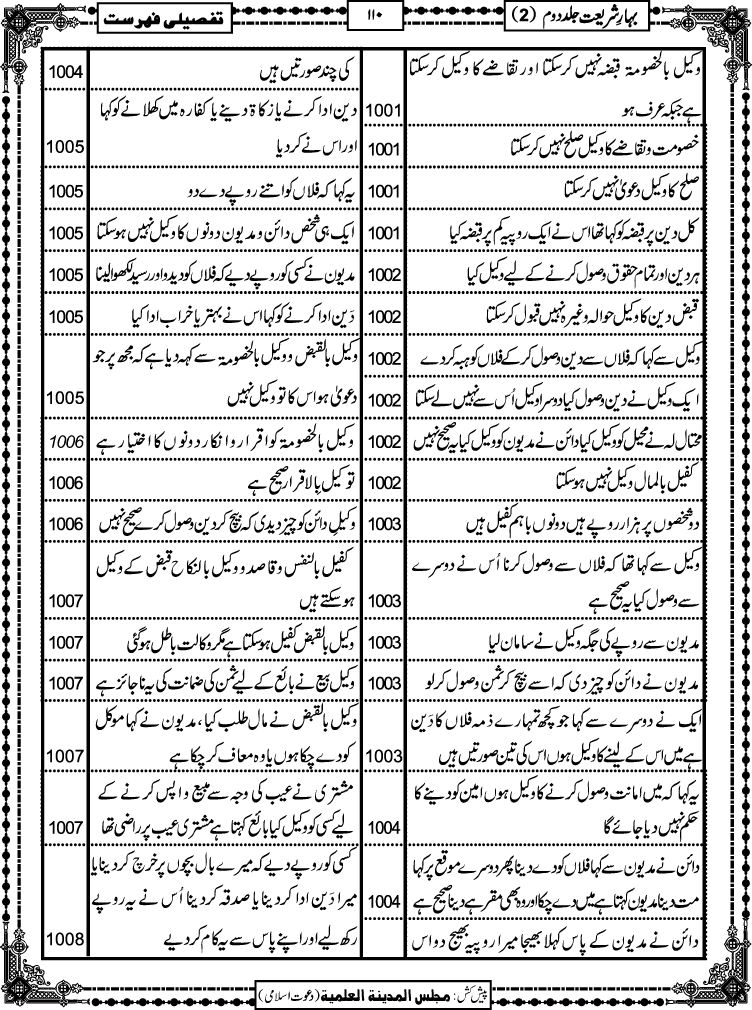 بہارِشریعت جلد دوم (2)
۱۱۰
تفصیلی فہرست
وکیل بالخصومۃ قبضہ نہیں کرسکتا اور تقاضے کا وکیل کرسکتا
ہے جبکہ عرف ہو 1001
خصومت وتقاضے کا وکیل صلح نہیں کرسکتا 1001
صلح کا وکیل دعویٰ نہیں کرسکتا 1001
کل دین پر قبضہ کو کہا تھا اس نے ایک روپیہ کم پر قبضہ کیا 1001
ہر دین اور تمام حقوق وصول کرنے کے لیے وکیل کیا 1002
قبض دین کا وکیل حوالہ وغیرہ نہیں قبول کرسکتا 1002
وکیل سے کہا کہ فلاں سے دین وصول کرکے فلاں کو ہبہ کردے 1002
ایک وکیل نے دین وصول کیا دوسرا وکیل اُس سے نہیں لے سکتا 1002
محتال لہ نے محیل کو وکیل کیا دائن نے مدیون کو وکیل کیا یہ صحیح نہیں 1002
کفیل بالمال وکیل نہیں ہوسکتا 1002
دو شخصوں پر ہزار روپے ہیں دونوں باہم کفیل ہیں 1003
وکیل سے کہا تھا کہ فلاں سے وصول کرنا اُس نے دوسرے
سے وصول کیا یہ صحیح ہے 1003
مدیون سے روپے کی جگہ وکیل نے سامان لیا 1003
مدیون نے دائن کو چیز دی کہ اسے بیچ کر ثمن وصول کرلو 1003
ایک نے دوسرے سے کہا جو کچھ تمہارے ذمہ فلاں کا دَین
ہے میں اس کے لینے کا وکیل ہوں اس کی تین صورتیں ہیں 1003
یہ کہا کہ میں امانت وصول کرنے کا وکیل ہوں امین کو دینے کا
حکم نہیں دیا جائے گا 1004
دائن نے مدیون سے کہا فلاں کو دے دینا پھر دوسرے موقع پر کہا
مت دینا مدیون کہتا ہے میں دے چکا اور وہ بھی مقر ہے دینا صحیح ہے 1004
دائن نے مدیون کے پاس کہلا بھیجا میرا روپیہ بھیج دو اس
کی چند صورتیں ہیں 1004
دین ادا کرنے یا زکاۃ دینے یا کفارہ میں کھلانے کو کہا
اور اس نے کردیا 1005
یہ کہا کہ فلاں کو اتنے روپے دے دو 1005
ایک ہی شخص دائن و مدیون دونوں کا وکیل نہیں ہوسکتا 1005
مدیون نے کسی کو روپے دیے کہ فلاں کو دیدو اور رسید لکھوا لینا 1005
دَین ادا کرنے کو کہا اس نے بہتر یا خراب ادا کیا 1005
وکیل بالقبض و وکیل بالخصومۃ سے کہہ دیا ہے کہ مجھ پر جو
دعویٰ ہو اس کا تو وکیل نہیں 1005
وکیل بالخصومۃ کو اقرار و انکار دونوں کا اختیار ہے 1006
توکیل بالاقرار صحیح ہے 1006
وکیلِ دائن کو چیز دیدی کہ بیچ کر دین وصول کرے صحیح نہیں 1006
کفیل بالنفس و قاصد و وکیل بالنکاح قبض کے وکیل
ہوسکتے ہیں 1007
وکیل بالقبض کفیل ہوسکتا ہے مگر وکالت باطل ہوگئی 1007
وکیل بیع نے بائع کے لیے ثمن کی ضمانت کی یہ ناجائز ہے 1007
وکیل بالقبض نے مال طلب کیا، مدیون نے کہا موکل
کو دے چکا ہوں یا وہ معاف کرچکا ہے 1007
مشتری نے عیب کی وجہ سے مبیع واپس کرنے کے
لیے کسی کو وکیل کیا بائع کہتا ہے مشتری عیب پر راضی تھا 1007
کسی کو روپے دیے کہ میرے بال بچوں پر خرچ کردینا یا
میرا دَین ادا کردینا یا صدقہ کردینا اُس نے یہ روپے
رکھ لیے اور اپنے پاس سے یہ کام کردیے 1008
پیش کش: مجلس المدینۃ العلمیۃ (دعوت اسلامی)